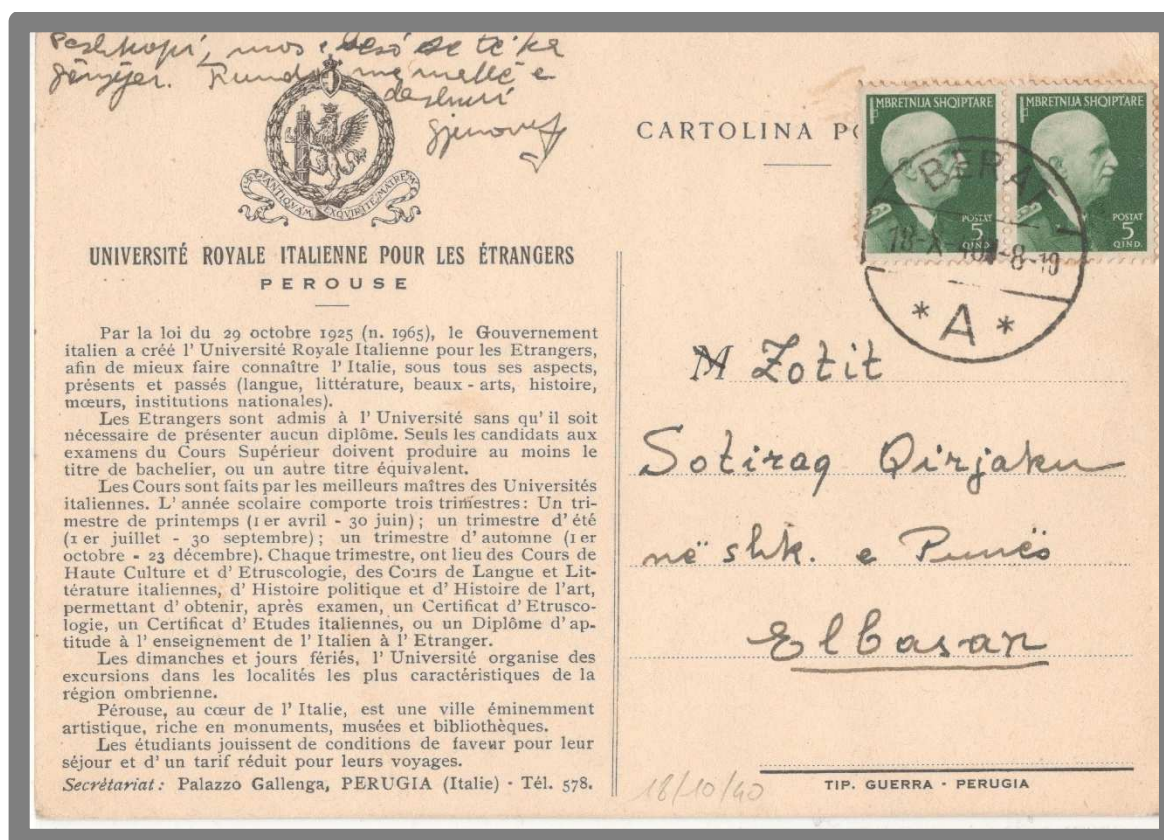 Peshkopi, mos e besó se të ka
gënjyer.
dashuri
ANTIQVAM EXQVIRITE MATREM
UNIVERSITÉ ROYALE ITALIENNE POUR LES ÉTRANGERS
PEROUSE
Par la loi du 29 octobre 1925 (n. 1965), le Gouvernement
italien a créé l' Université Royale Italienne pour les Etrangers,
afin de mieux faire connaître l' Italie, sous tous ses aspects,
présents et passés (langue, littérature, beaux - arts, histoire,
mœurs, institutions nationales).
Les Etrangers sont admis à l' Université sans qu' il soit
nécessaire de présenter aucun diplôme. Seuls les candidats aux
examens du Cours Supérieur doivent produire au moins le
titre de bachelier, ou un autre titre équivalent.
Les Cours sont faits par les meilleurs maîtres des Universités
italiennes. L' année scolaire comporte trois trimestres: Un tri-
mestre de printemps (1 er avril - 30 juin); un trimestre d' été
(1 er juillet - 30 septembre); un trimestre d' automne (1 er
octobre - 23 décembre). Chaque trimestre, ont lieu des Cours de
Haute Culture et d' Etruscologie, des Cours de Langue et Lit-
térature italiennes, d' Histoire politique et d' Histoire de l'art,
permettant d' obtenir, après examen, un Certificat d' Etrusco-
logie, un Certificat d' Etudes italiennes, ou un Diplôme d' ap-
titude à l' enseignement de l' Italien à l' Etranger.
Les dimanches et jours fériés, l' Université organise des
excursions dans les localités les plus caractéristiques de la
région ombrienne.
Pérouse, au cœur de l' Italie, est une ville éminemment
artistique, riche en monuments, musées et bibliothèques.
Les étudiants jouissent de conditions de faveur pour leur
séjour et d' un tarif réduit pour leurs voyages.
Secrètariat: Palazzo Gallenga, PERUGIA (Italie) - Tél. 578.
CARTOLINA PO
MBRETNIJA SHQIPTARE
POSTAT
5
QIND.
MBRETNIJA SHQIPTARE
POSTAT
5
QIND.
BERAT
* A *
M Zotit
Sotiraq Qirjaku
në shk. e Punës
Elbasan
18/10/40
TIP. GUERRA - PERUGIA